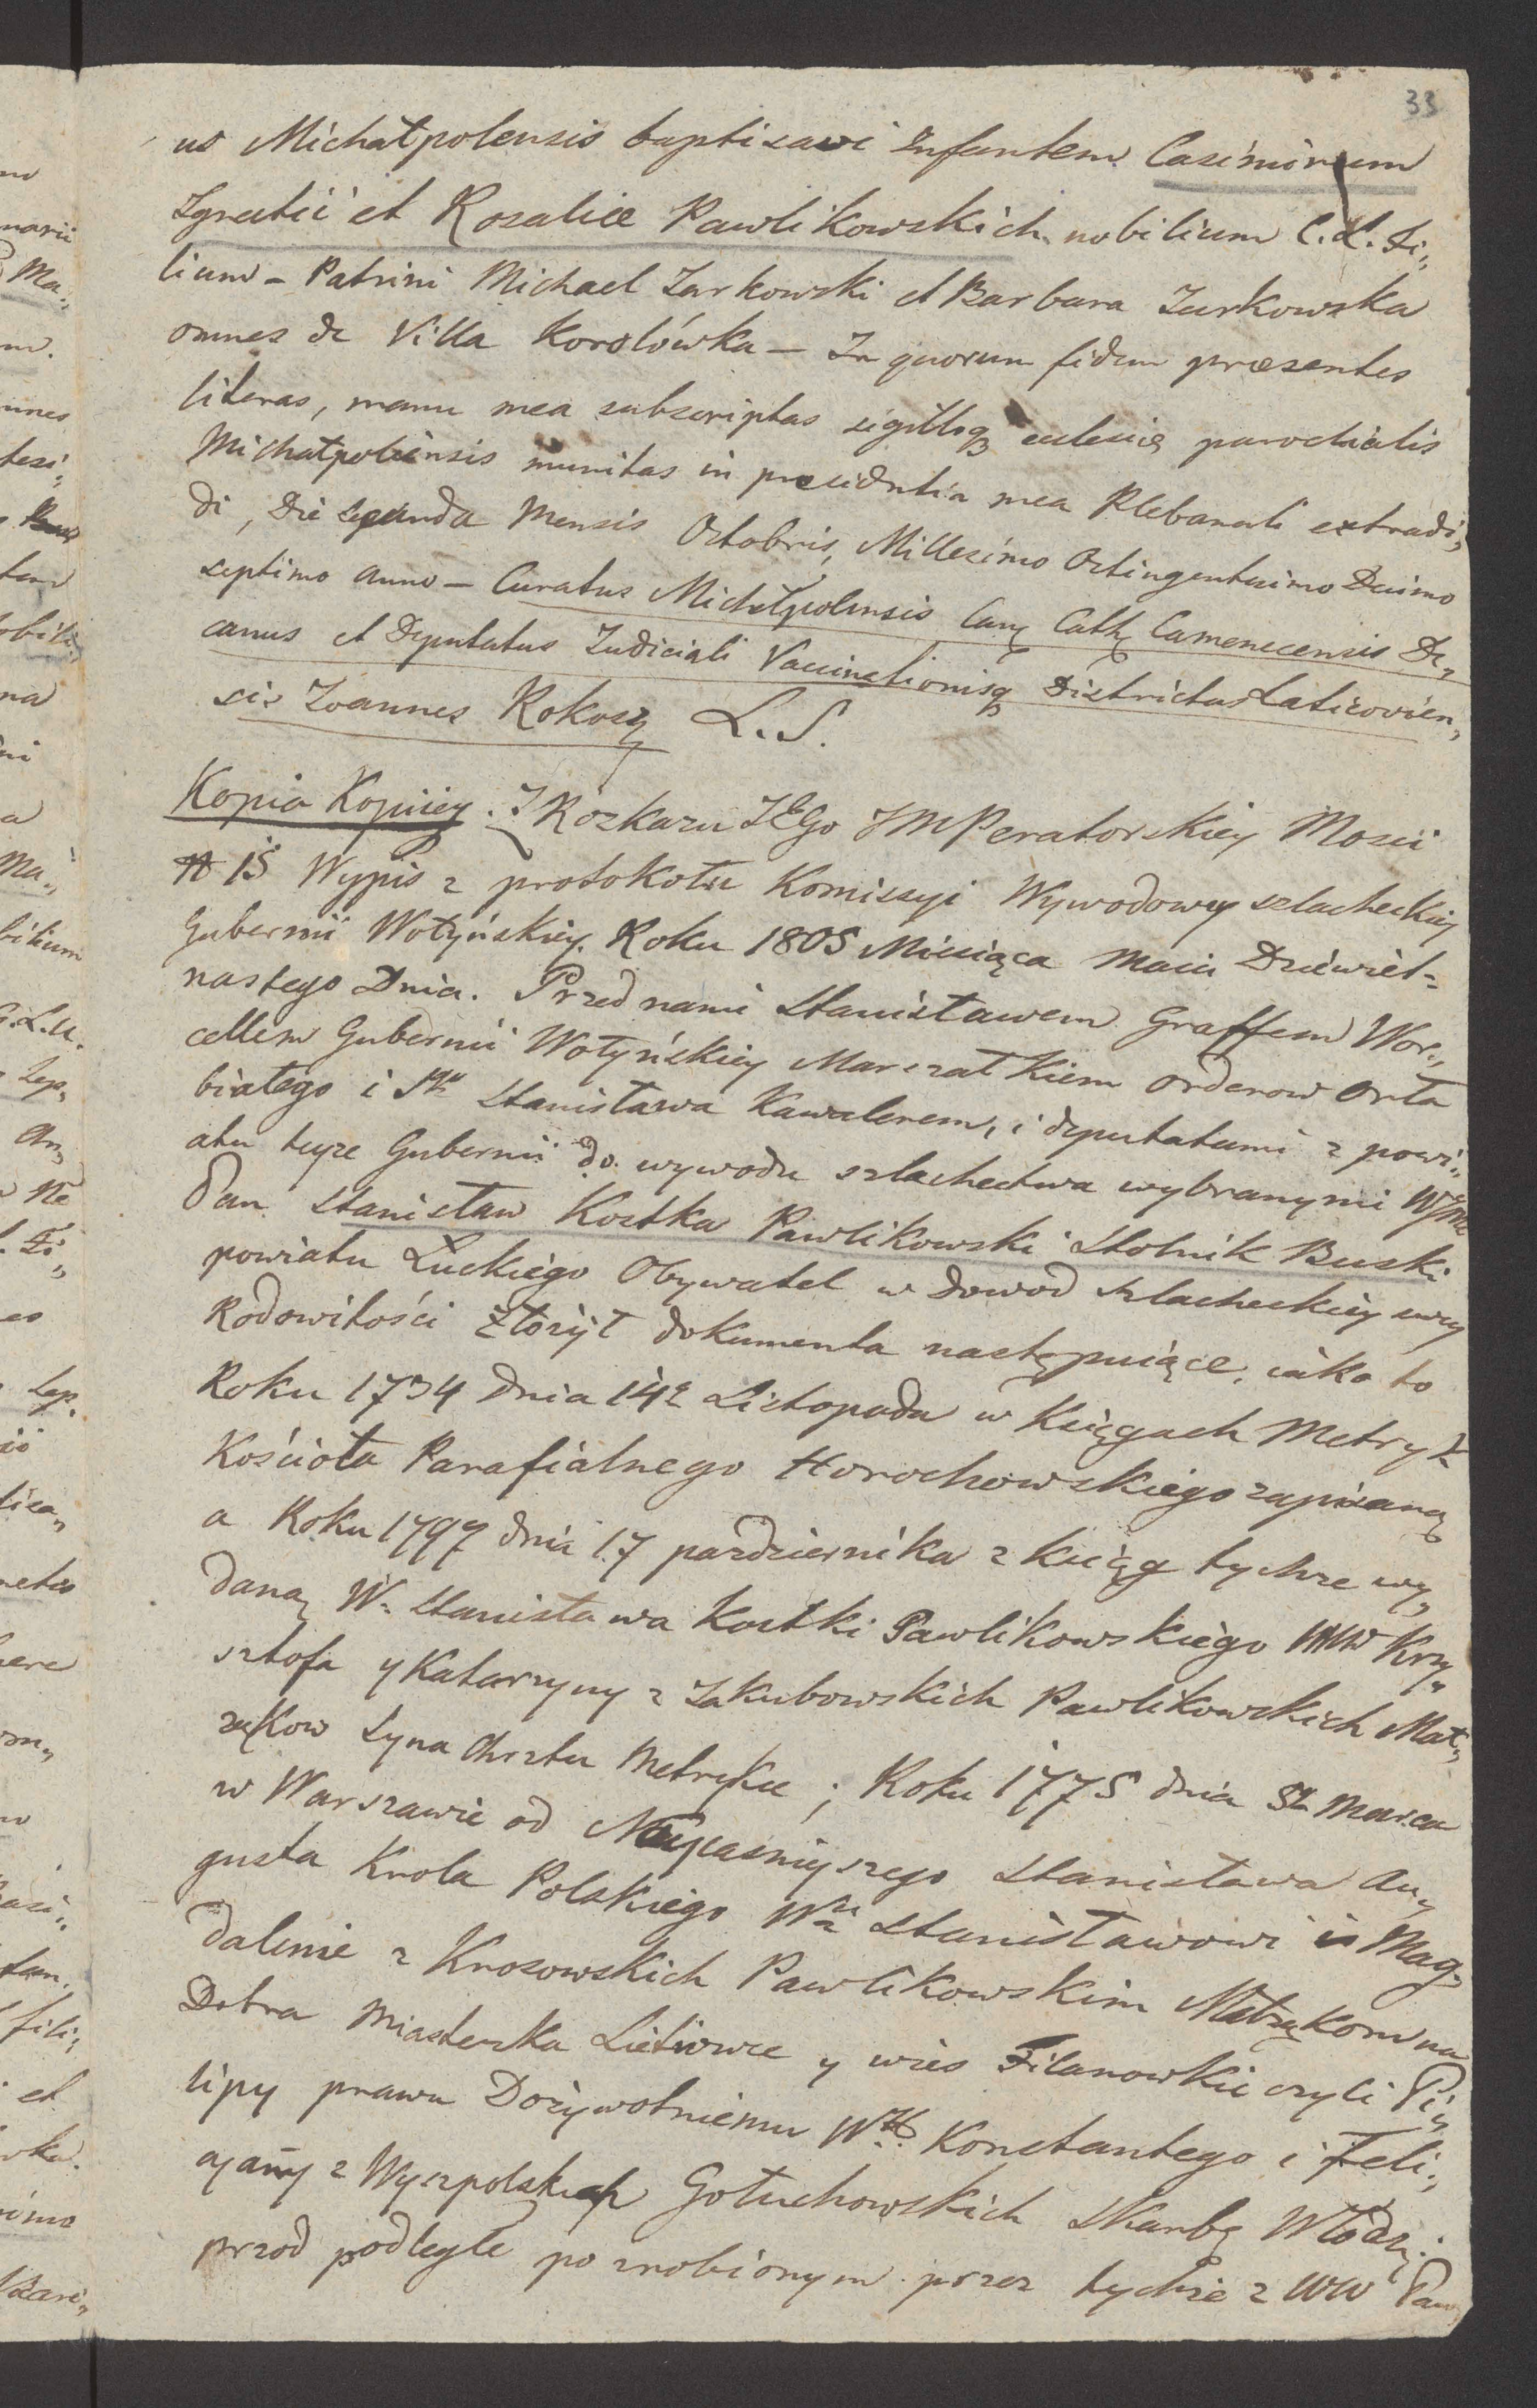 33
us Michałpolensis baptisavi Infantem Casimirum
Ignatii et Rosaliæ Pawlikowskich nobilium C. L. Fi„
lium – Patrini Michael Zarkowski et Barbara Zurkowska
omnes de Villa Korolówka – In quorum fidem præsentes
literas, manu mea subscriptas sigilloq ecclesię parochialis
Michałpoliensis munitas in præsidentia mea Plebanali extradi„
di, Die secunda Mensis Octobris, Millesimo Octingentesimo Decimo
septimo anno – Curatus Michałpolensis Canę Cathę Camenecensis De„
canus et Deputatus Judiciali Vaccinationisq Districtus Laticovien„
sis Joannes Rokosz L. S.
Kopia Kopiiey. Z Rozkazu JEGo JMPeratorskiey Mosci
15 Wypis z protokołu Komissyi Wywodowey szlacheckiey
Gubernii Wołyńskiey. Roku 1805 Miesiąca Maia Dziewięt=
nastego Dnia. Przed nami Stanisławem Graffem Wor„
cellem Gubernii Wołyńskiey Marszałkiem orderow orła
białego i Sgo Stanisława Kawalerem, i deputatami z powi„
atu teyze Gubernii do wywodu szlachectwa wybranymi WJmc
Pan Stanisław Kostka Pawlikowski Stolnik Buski
powiatu Łuckiego Obywatel w dowod szlacheckiey swey
Rodowitości złożył dokumenta następuiące, iako to
Roku 1734 dnia 14 Listopada w Księgach Metryk
Kościoła Parafialnego Horochowskiego zapisaną
a Roku 1797 dnia 17 pazdziernika z ksiąg tychze wy„
daną W. Stanisława Kostki Pawlikowskiego WW Krzy„
sztofa y Katarzyny z Jakubowskich Pawlikowskich Mał„
zękow Syna Chrztu Metrykę; Roku 1775 dnia Marca
w Warszawie od Nayiasnieyszego Stanisława Au„
gusta Krola Polskiego Stanisławowi i Mag„
dalenie z Krosowskich Pawlikowskim Małzękom na
Dobra Miasteczka y wies Filanowkie czyli Pi„
lipy prawu Dożywotniemu WW. Konstantego i Feli„
cyanny z Wyszpolskich Gołuchowskich Skarbę Włodz:
przod podległe po zrobionym przez tychże z WW Paw„